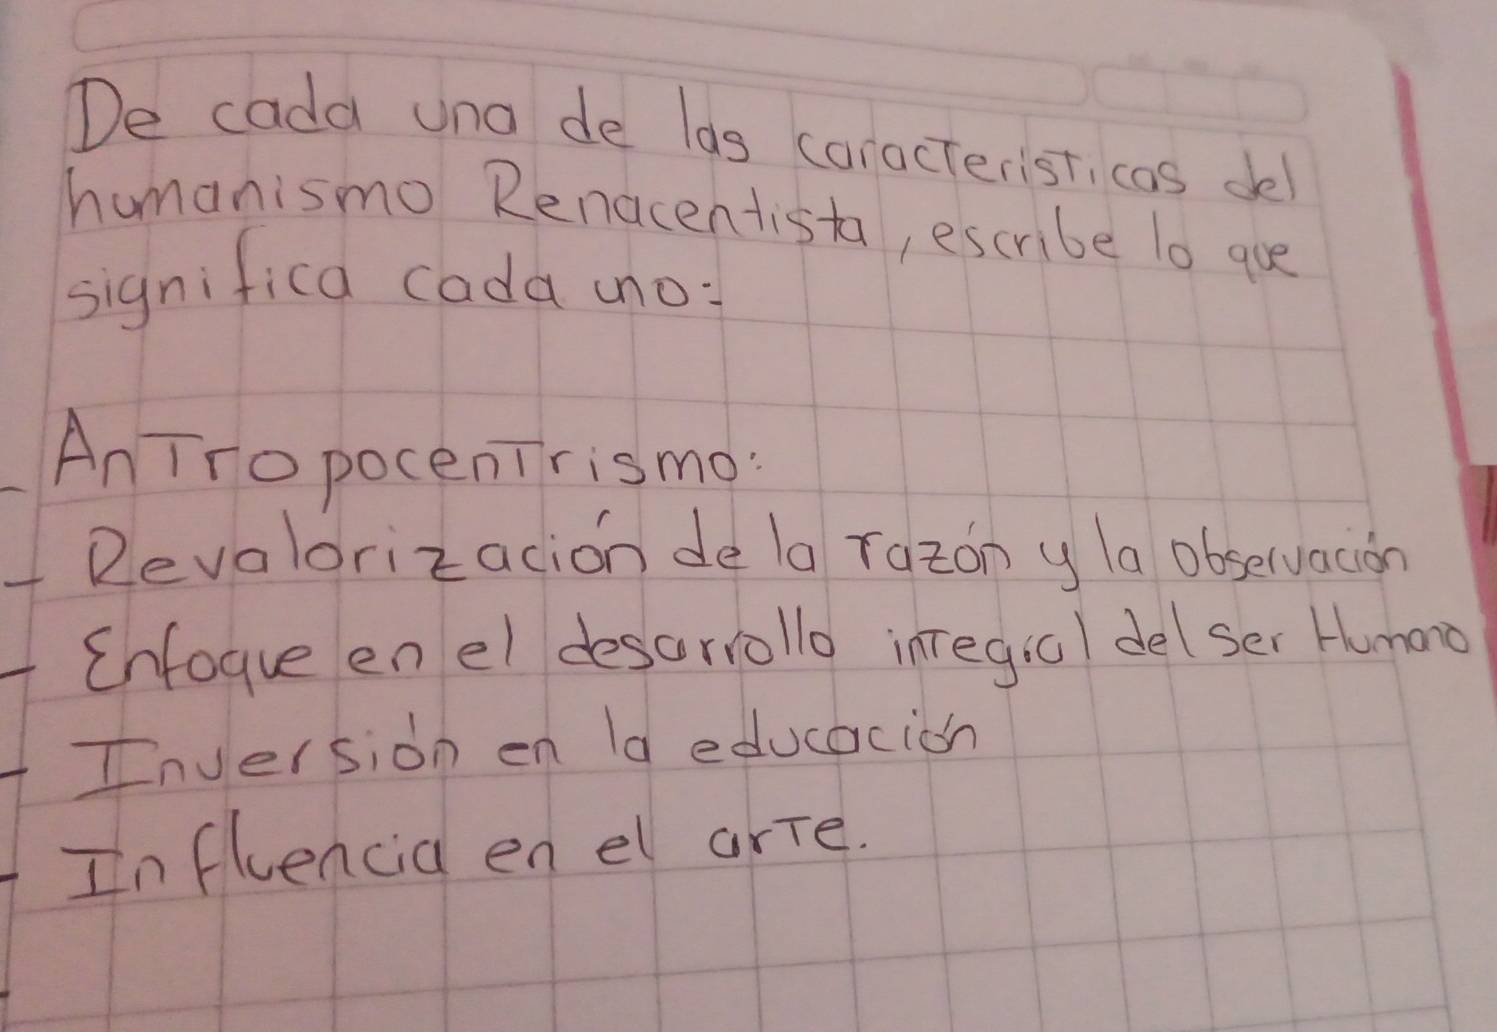 De cada una de las caracteristicas del
humanismo Renacentista, escribe lo que
significa cada uno:
- Antropocentrismo:
- Revalorización de la razón y la observación
- Enfoque en el desarrollo integral del ser Humano
- Inversión en la educación
- Influencia en el arte.